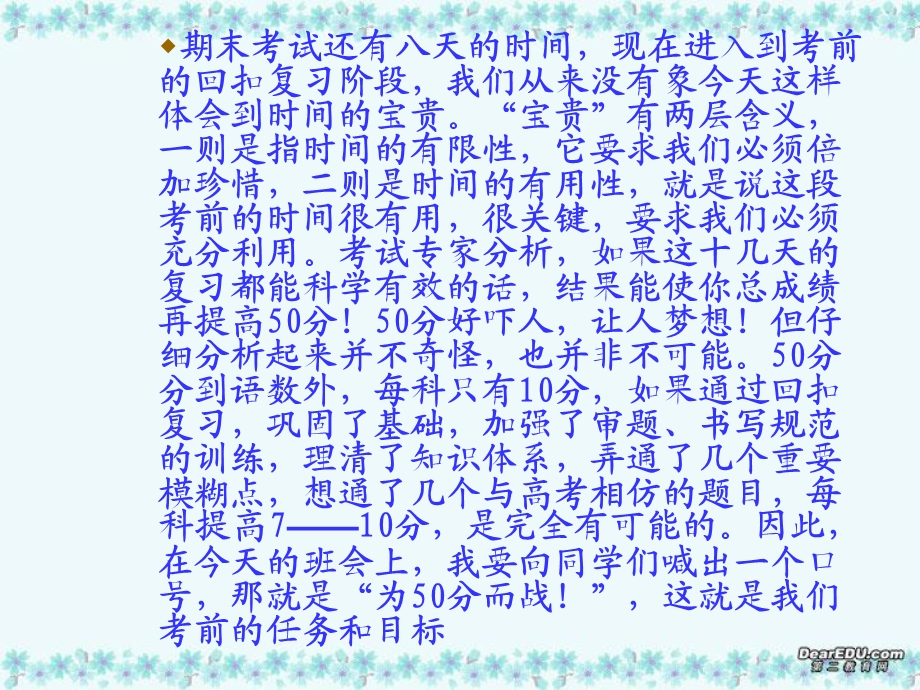 期末考试还有八天的时间，现在进入到考前
的回扣复习阶段，我们从来没有象今天这样
体会到时间的宝贵。“宝贵”有两层含义，
一则是指时间的有限性，它要求我们必须倍
加珍惜，二则是时间的有用性，就是说这段
考前的时间很有用，很关键，要求我们必须
充分利用。考试专家分析，如果这十几天的
复习都能科学有效的话，结果能使你总成绩
再提高50分！50分好吓人，让人梦想！但仔
细分析起来并不奇怪，也并非不可能。50分
分到语数外，每科只有10分，如果通过回扣
复习，巩固了基础，加强了审题、书写规范
的训练，理清了知识体系，弄通了几个重要
模糊点，想通了几个与高考相仿的题目，每
科提高7——10分，是完全有可能的。因此，
在今天的班会上，我要向同学们喊出一个口
号，那就是“为50分而战！”，这就是我们
考前的任务和目标
DearEDU.com
第二教育网